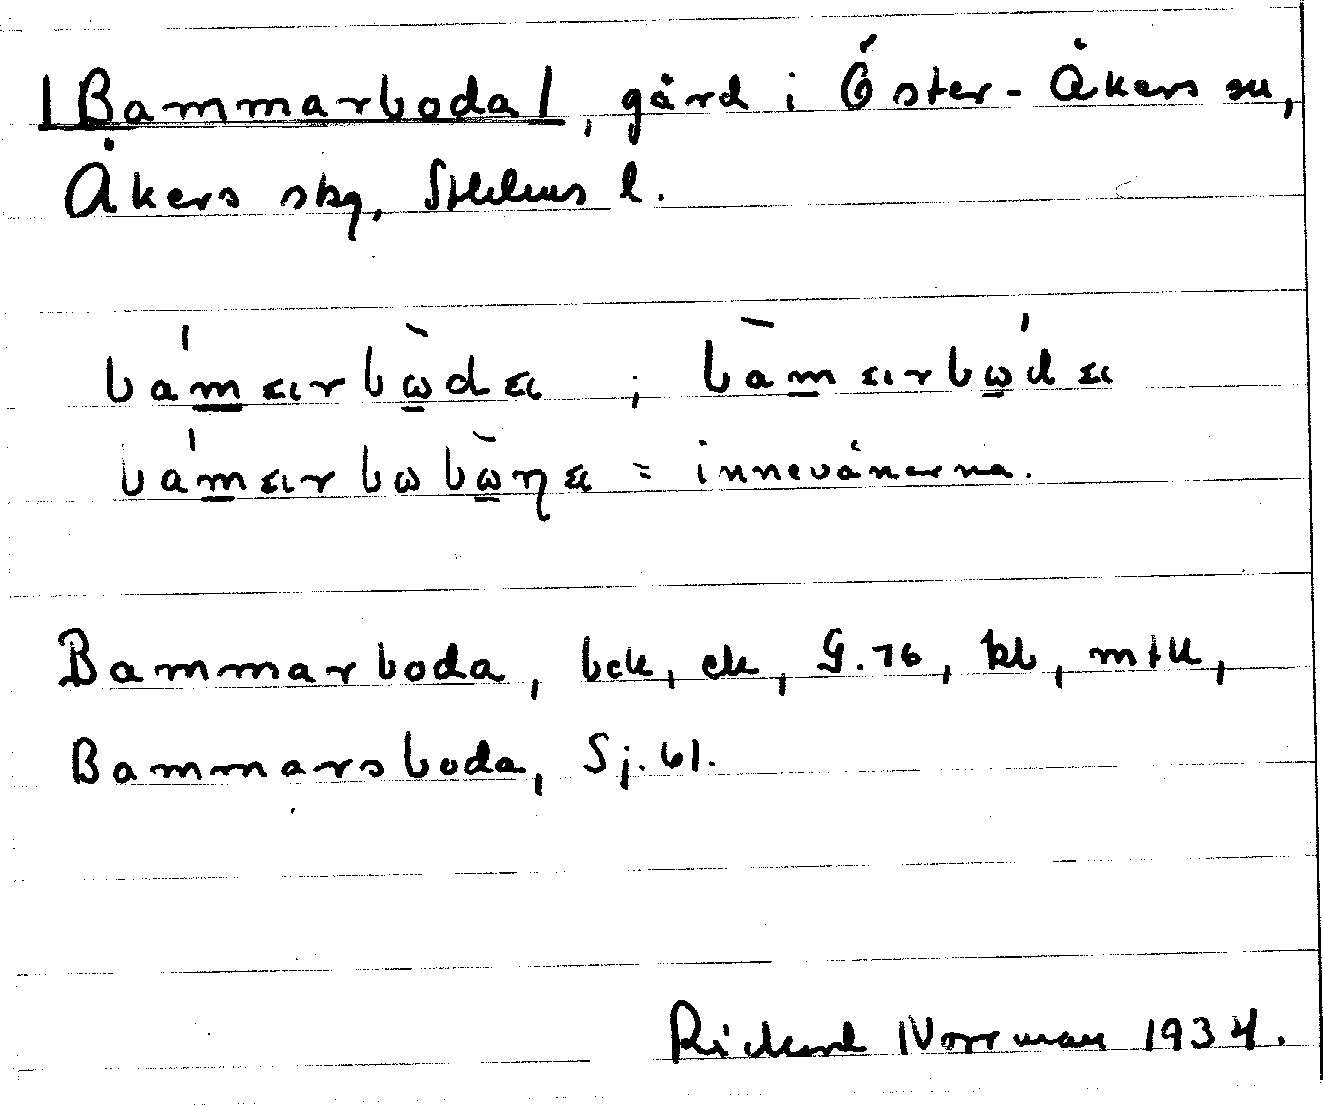 |Bammarboda|, gård i Öster-Åkers sn,
Åkers skg, Sthlms l.
bámarbὼda ; bàmarbώda
bámarbωbὼηa = innevånarna.
Bammarboda, bck, ck, G.76, kb, mtk,
Bammarsboda, Sj. 61.
Rickard Norrman 1934.